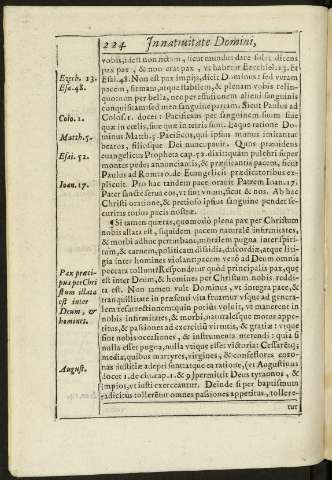 224 Innatiuitate Domini,
vobis, idest non dam, sicut mundus dare solet dicens
pax pax, & non erat pax, vt habetur Ezechiel. 13. Et
Esai. 48. Non est pax impijs, dicit Dominus: sed veram
pacem, firmam, atque stabilem, & plenam vobis relin-
quo non per bella, nec per effusionem alieni sanguinis
conquistam sed meo sanguine partam. Sicut Paulus ad
Colos. 1. docet: Pacificans per sanguinem suum siue
quæ in cœlis, siue quæ in terris sunt. Eaque ratione Do-
minus Matth. 5. Pacificos, qui ipsius munus imitantur
beatos, filiosque Dei nuncupauit. Quos præuidens
euangelicus Propheta cap. 52. dixit quàm pulchri super
montes pedes annuncianti, & prædicantis pacem, sicut
Paulus ad Rom. 10. de Euangelicis prædicatoribus ex-
plicuit. Pro hac tandem pace orauit Patrem Ioan. 17.
Pater sancte serua eos, vt sint vnum, sicut & nos. Ab hac
Christi oratione, & pretioso ipsius sanguine pendet se-
curitas totius pacis nostræ.
¶ Si tamen quæras, quomodo plena pax per Christum
nobis allata est, siquidem pacem naturalẽ infirmitates,
& morbi adhuc perturbant, moralem pugna inter spiri-
tum, & carnem, politicam dissidia, discordiæ, atque liti-
gia inter homines violant pacem verò ad Deum omnia
peccata tollunt? Respondetur quòd principalis pax, que
est inter Deum, & homines per Christum nobis reddi-
ta est. Non tamen vult Dominus, vt integra pace, &
tranquillitate in præsenti vita fruamur vsque ad genera-
lem resurrectionem: quin potiùs voluit, vt manerent in
nobis infirmitates, & morbi, naturalesque motus appe-
titus, & passiones ad exercitiũ virtutis, & gratiæ: vtque
sint nobis occasiones, & instrumenta merendi: quia si
nulla esset pugna, nulla vtique esset victoria: Cessarẽtq;
media, quibus martyres, virgines, & confessores coro-
nas iustitiæ adepti sunt: atque ea ratione, (vt Augustinus
docet 1. de ciu. cap. 1. & 9) permittit Deus tyrannos, &
impios, vt iusti exerceantur. Deinde si per baptismum
radicitùs tollerẽtur omnes passiones appetitus, tollere-
tur
Ezech. 13.
Esa. 48.
Colo. 1.
Matth. 5.
Esai. 52.
Ioan. 17.
Pax præci-
pua per Chri
stum illata
est inter
Deum, &
homines.
August.